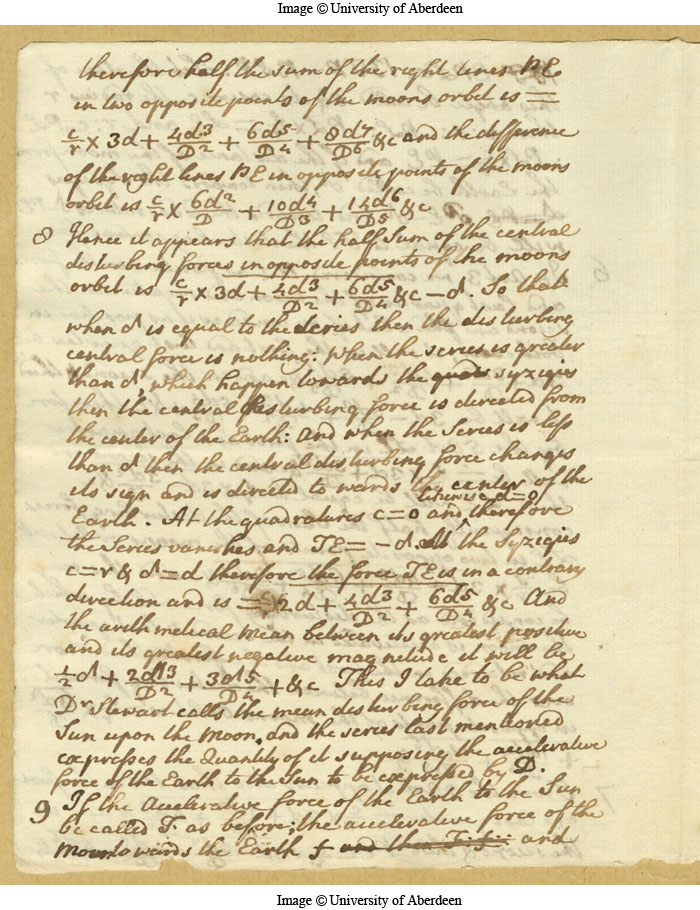 Image © University of Aberdeen
therefore half the sum of the right lines PE
in two opposite points of the moons orbit is =
c/r × 3d + 4d3/D2 + 6d5/D4 + 8d7/D6 &c and the difference
of the right lines PE in opposite points of the moons
orbit is c/r × 6d2/D + 10d4/D3 + 14d6/D5 &c
8 Hence it appears that the half Sum of the central
disturbing forces in opposite points of the moons
orbit is c/r × 3d + 4d3/D2 + 6d5/D4 &c – d. So that
when d is equal to the series then the disturbing
central force is nothing: When the series is greater
than d, which happen towards the quad syzigies
then the central disturbing force is directed from
the center of the Earth: and when the Series is less
than d then the central disturbing force changes
its sign and is directed to wards the center of the
likewise d=0
Earth. At the quadratures c=0 and ^ therefore
the Series vanishes and TE = – d. At the Syzigies
c=r & d=d therefore the force TE is in a contrary
direction and is = 2d + 4d3/D2 + 6d5/D4 &c And
the arithmetical mean between its greatest positive
and its greatest negative magnitude it will be
1/2 d + 2d3/D2 + 3d5/D4 + &c This I take to be what
Dr Stewart calls the mean disturbing force of the
Sun upon the Moon, and the series last mentioned
expresses the Quantity of it supposing the accelerative
force of the Earth to the Sun to be expressed by D.
9 If the Accelerative force of the Earth to the Sun
be called F as before; the accelerative force of the
Moon to wards the Earth f and then F:f:: and
Image © University of Aberdeen